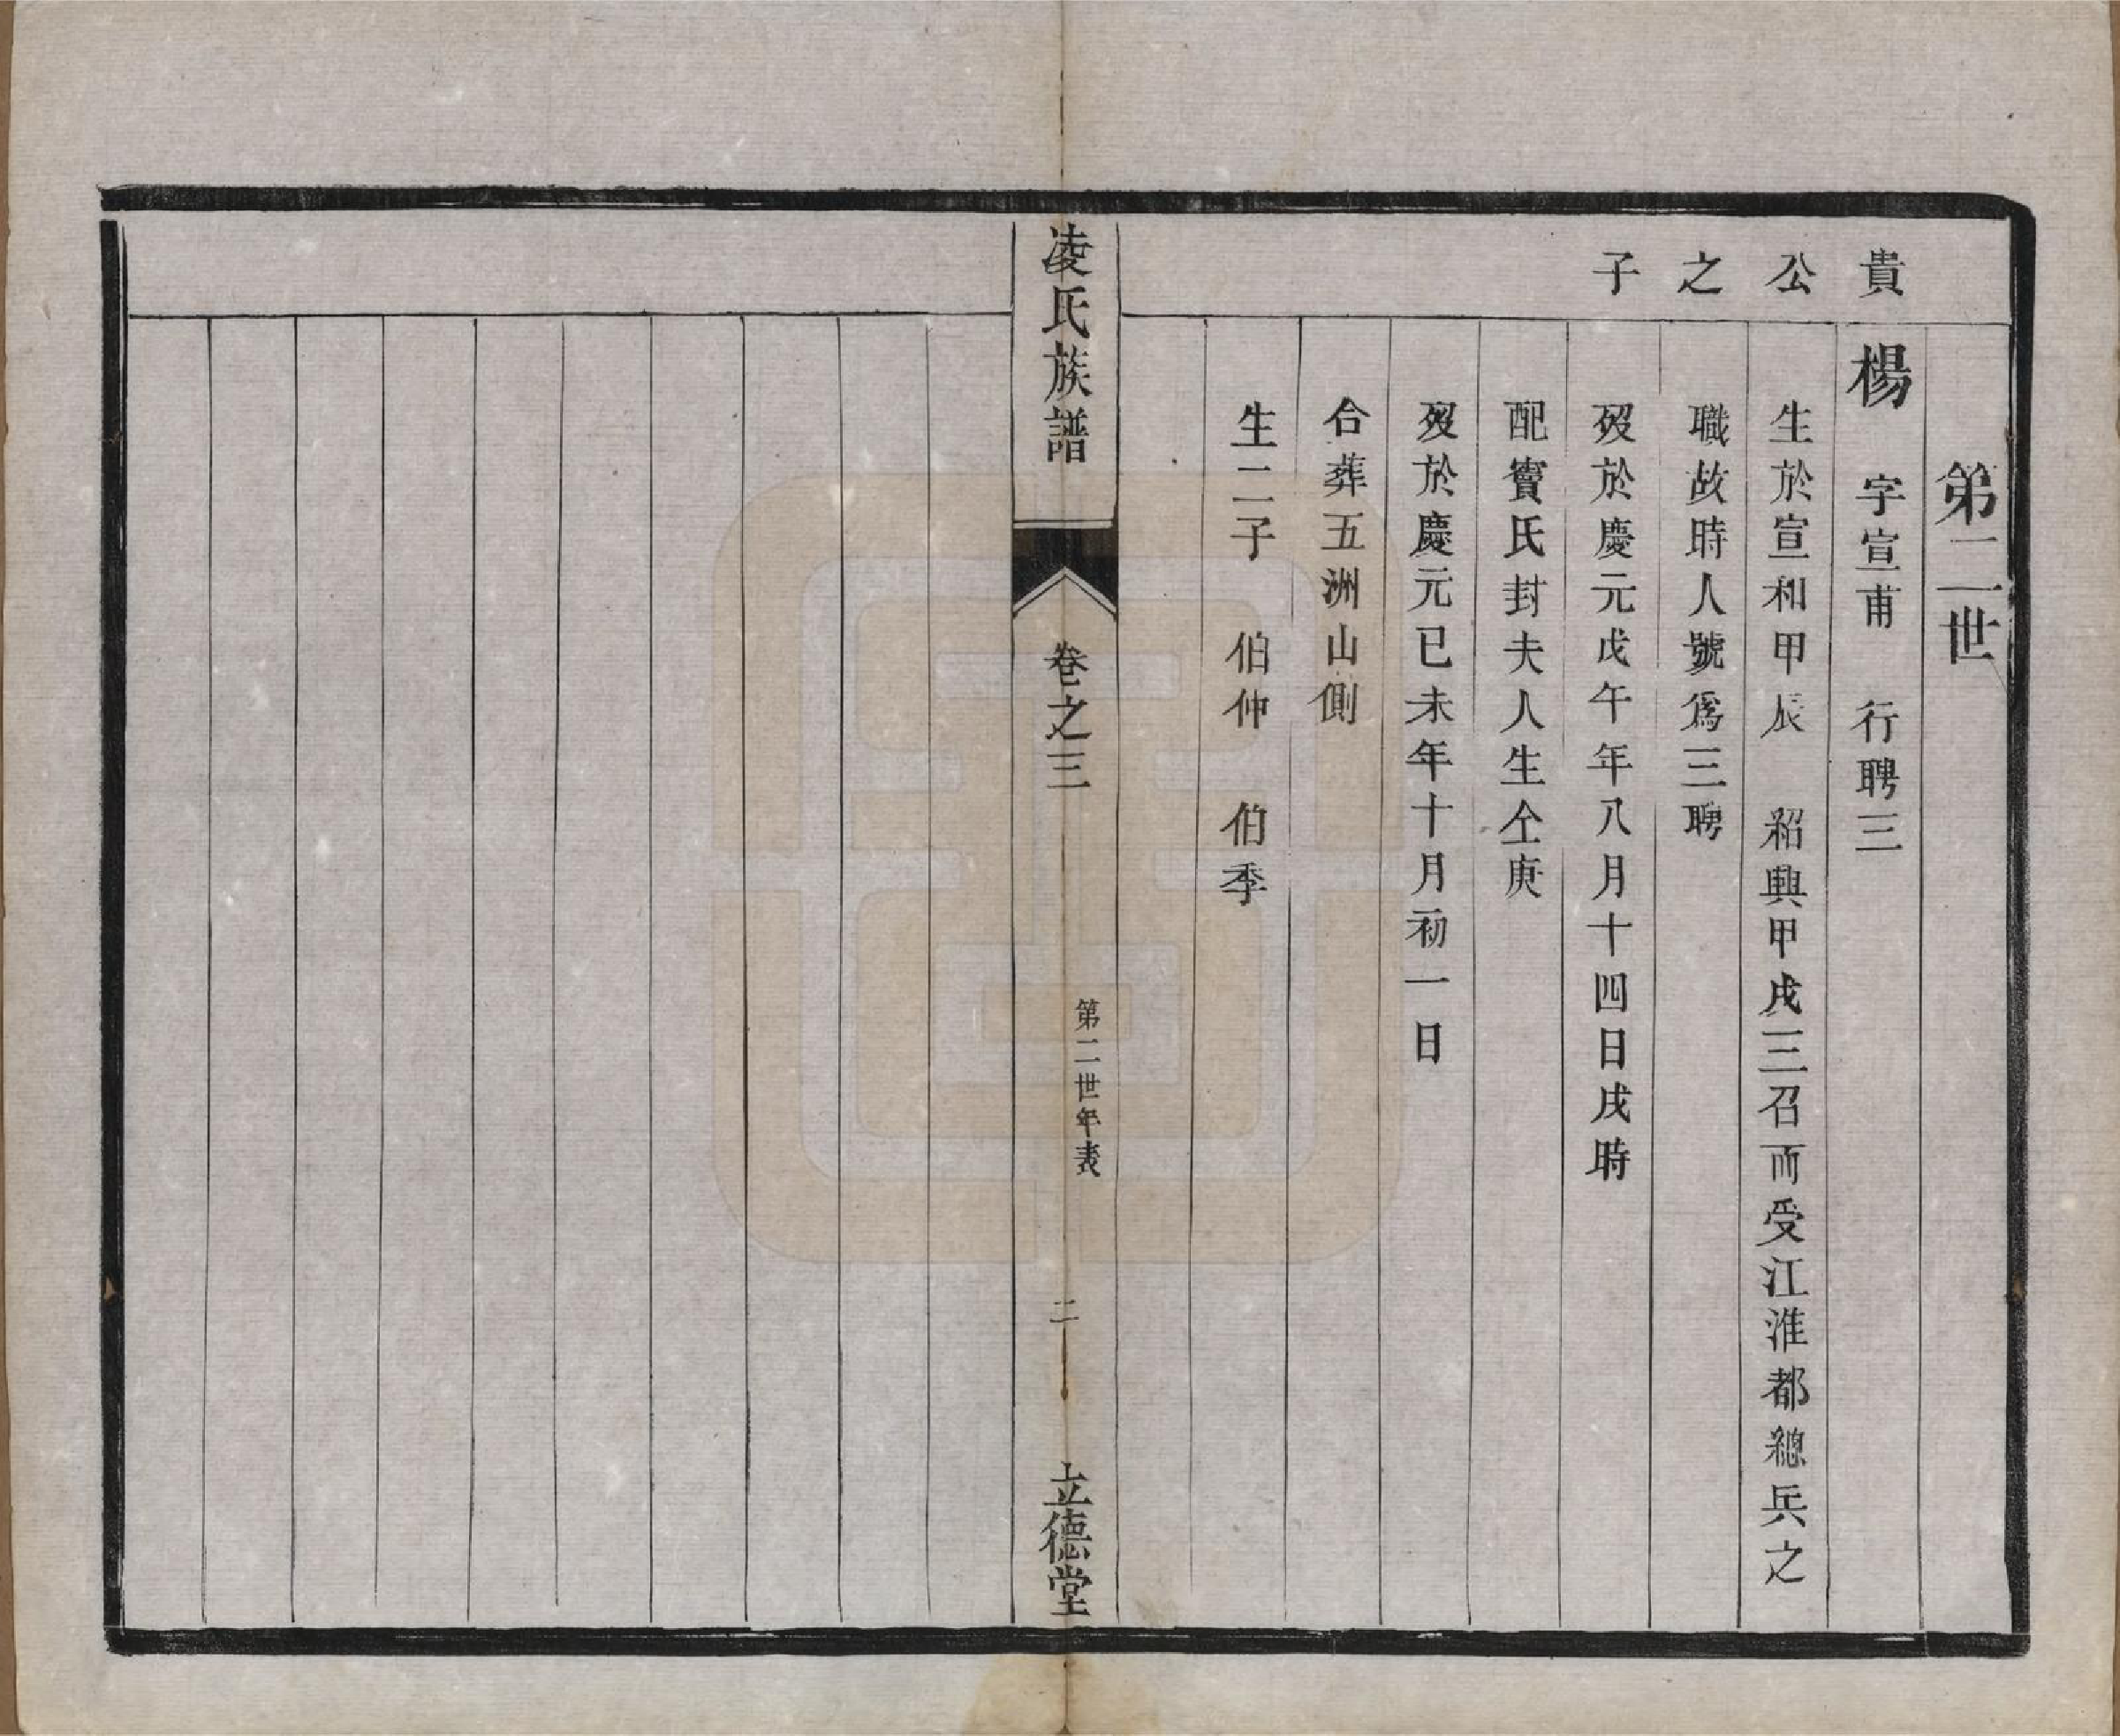 第二世
貴公之子
楊 字宣甫 行聘三
生於宣和甲辰 紹興甲戌三召而受江淮都總兵之
職故時人號為三聘
歿於慶元戊午年八月十四日戌時
配竇氏封夫人生仝庚
歿於慶元已未年十月初一日
合葬五洲山側
生二子 伯仲 伯季
凌氏族譜
卷之三
第二世年表
二
立德堂